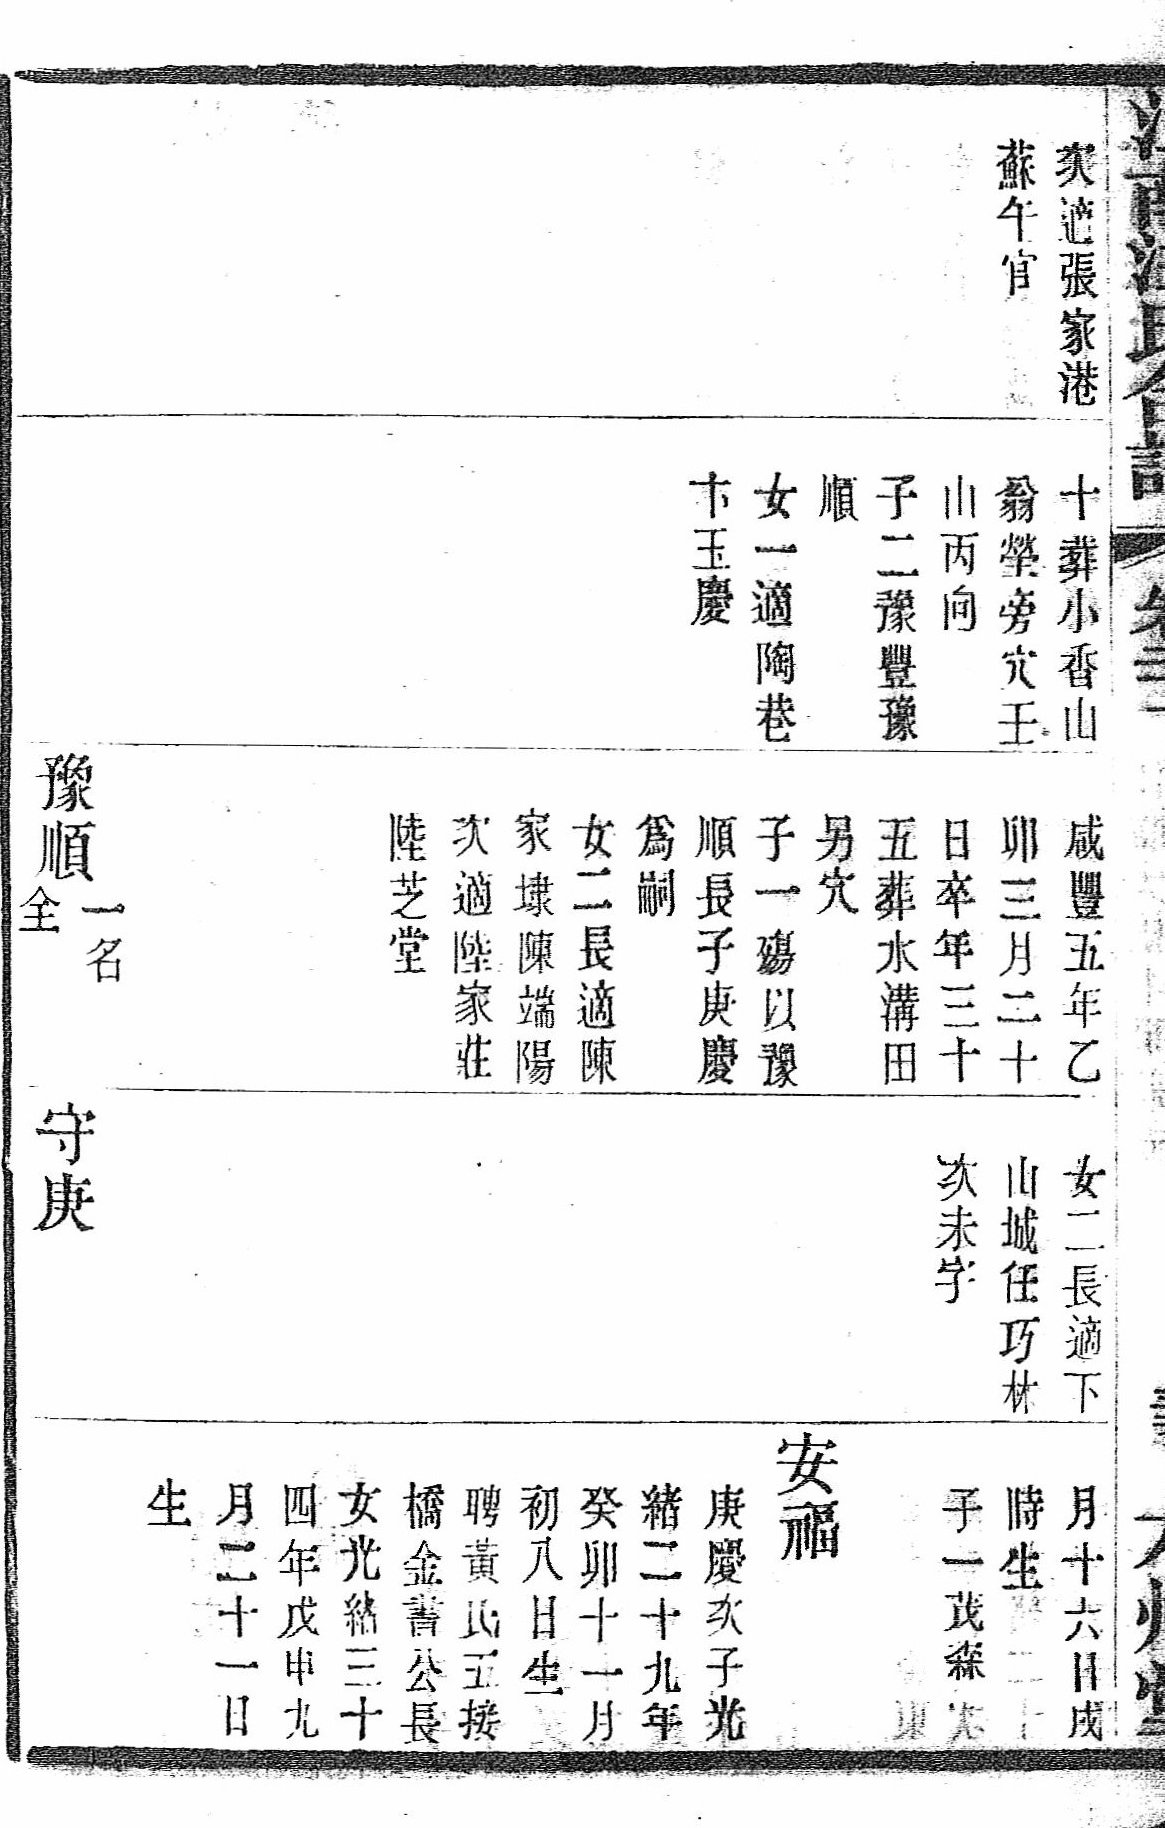 次適張家港
蘇午官
十葬小香山
翁塋旁穴壬
山丙向
子二豫豐豫
順
女一適陶巷
卞玉慶
咸豐五年乙
卯三月二十
日卒年三十
五葬水溝田
另穴
子一殤以豫
順長子庚慶
爲嗣
女二長適陳
家埭陳端陽
次適陸家莊
陸芝堂
豫順
一名
全
女二長適下
山城任巧林
次未字
守庚
月十六日戌
時生
子一茂森
安福
庚慶次子光
緒二十九年
癸卯十一月
初八日生
聘黃氏五接
橋金書公長
女光緒三十
四年戊申九
月二十一日
生